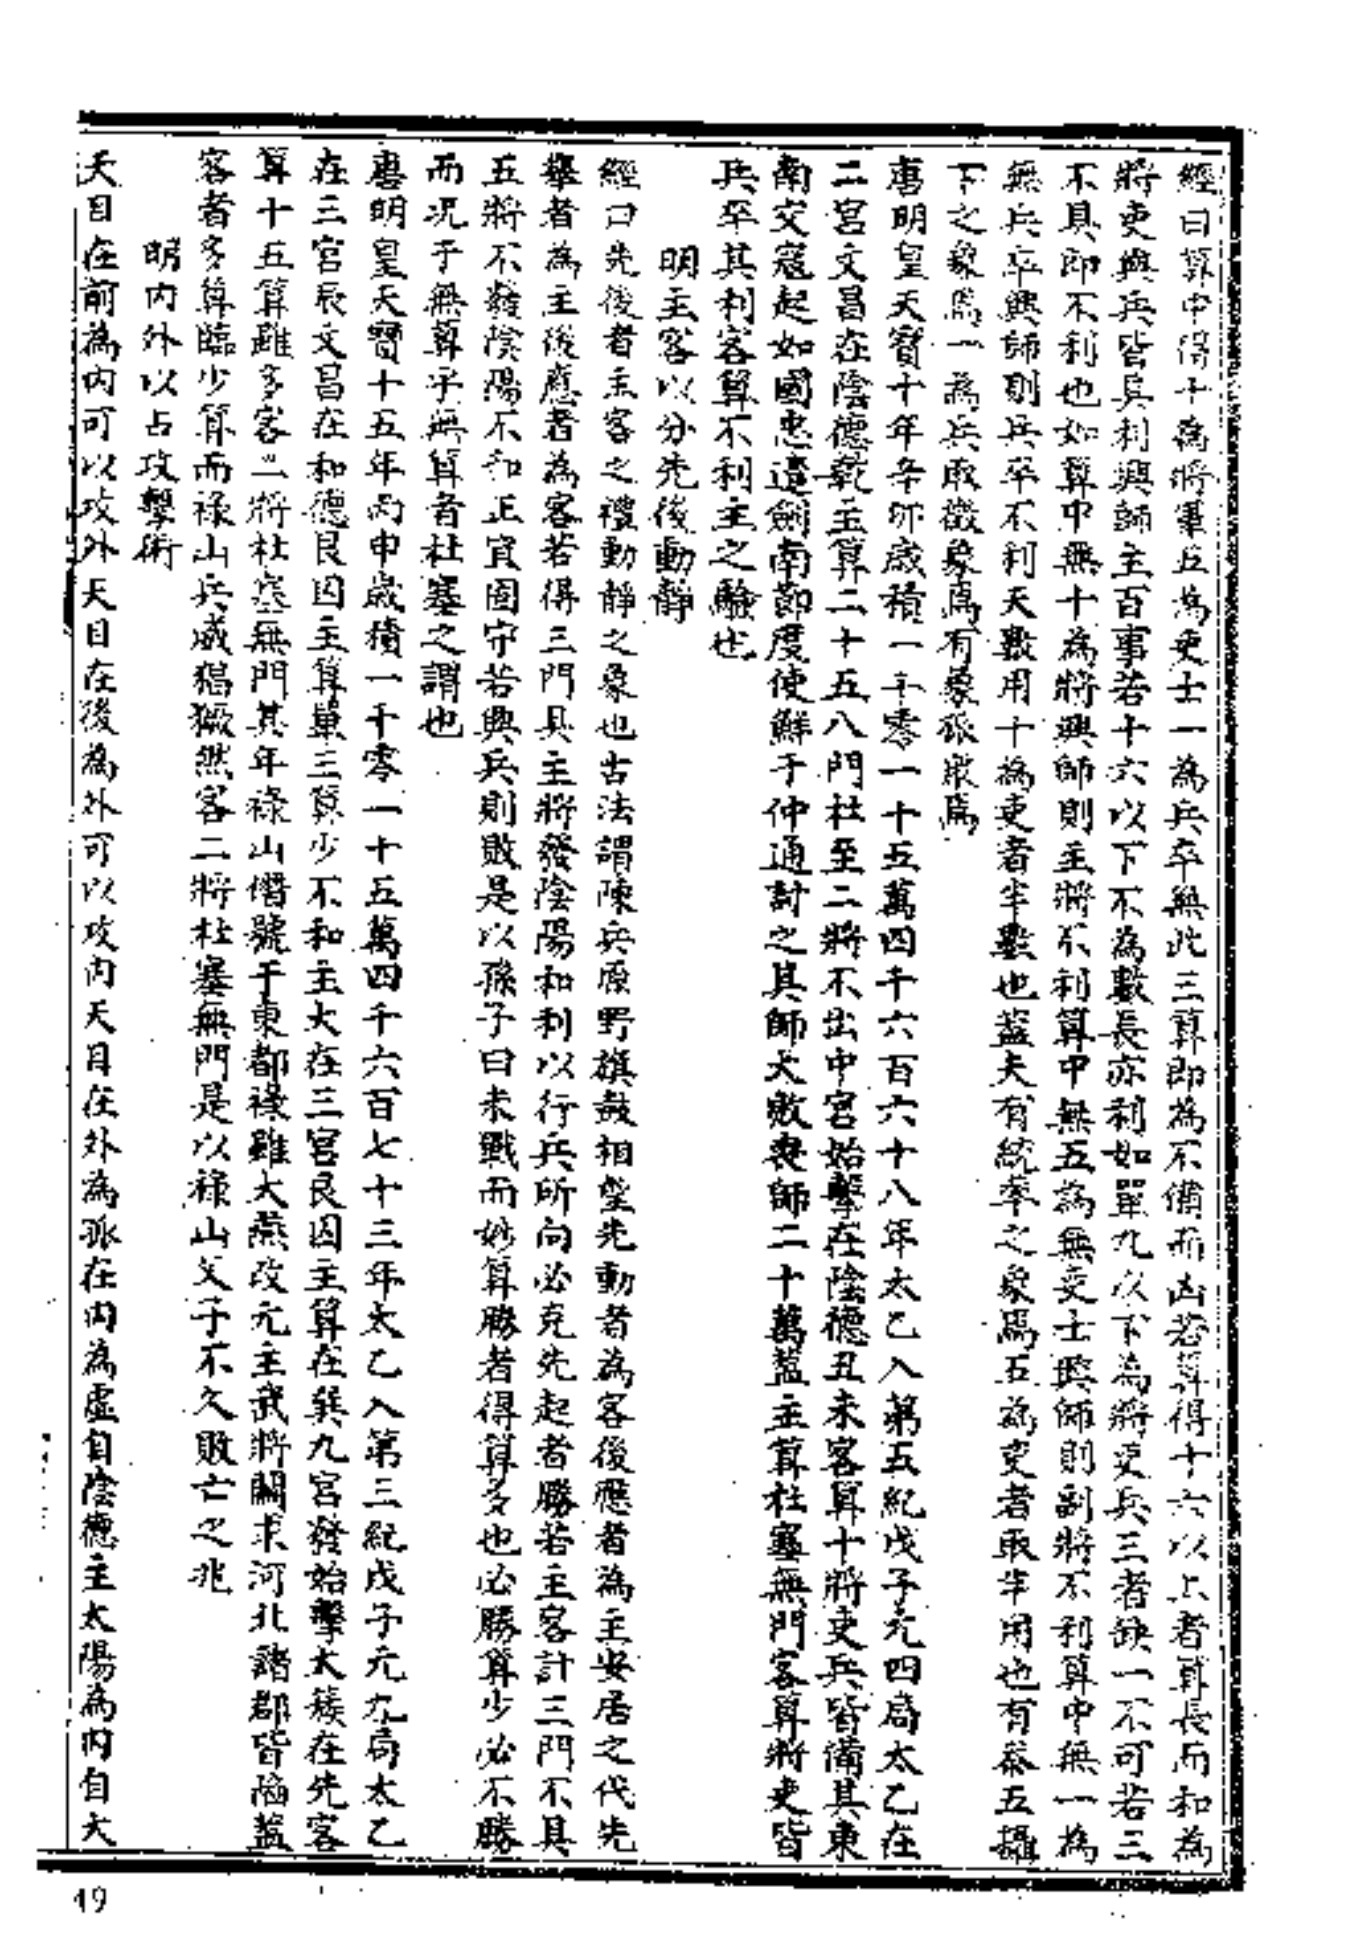 經曰算中得十為將軍五為吏士一為兵卒無此三算即為不備而凶若算得十六以上者算長而和為
將吏與兵皆具利興師主百事若十六以下不為數長亦利如單九以下為將吏兵三者缺一不可若三
不具即不利也如算中無十為將興師則主將不利算中無五為無吏士臨師則副將不利算中無一為
無兵卒興師則兵卒不利天數用十為吏者半數也蓋夫有統率之象焉五為吏者取半用也有叅五攝
下之象焉一為兵取微象焉有象孤眾焉
唐明皇天寶十年辛卯歲積一千零一十五萬四千六百六十八年太乙入第五紀戊子元四局太乙在
二宮文昌在陰德乾主算二十五八門杜至二將不出中宮始擊在陰德丑未客算十將吏兵皆備其東
南交寇起如國忠遣劍南節度使鮮于仲通討之其師大敗喪師二十萬蓋主算杜塞無門客算將吏皆
兵卒其利客算不利主之驗也
明主客以分先後動靜
經曰先後者主客之禮動靜之象也古法謂陳兵原野旗鼓相望先動者為客後應者為主安居之代先
舉者為主後應者為客若得三門具主將發陰陽和利以行兵所向必克先起者勝若主客計三門不具
五將不發陰陽不和正宜固守若興兵則敗是以孫子曰未戰而妙算勝者得算多也必勝算少必不勝
而况于無算乎無算者杜塞之謂也
唐明皇天寶十五年丙申歲積一千零一十五萬四千六百七十三年太乙入第三紀戊子元九局太乙
在三宮辰文昌在和德艮囚主算單三算少不和主大在三宮艮囚主算在巽九宮發始擊大簇在先客
算十五算雖多客二將杜塞無門其年祿山僭號于東都祿雖大燕改元主武將關求河北諸郡皆陷蓋
客者多算臨少算而祿山兵威猖獗然客二將杜塞無門是以祿山父子不久敗亡之兆
明內外以占攻擊術
天目在前為內可以攻外天目在後為外可以攻內天目在外為孤在內為虛自陰德主太陽為內自大
19